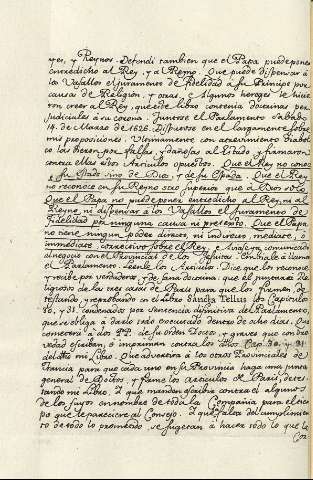 yes, y Reynos. Defendi tambien que el Papa puede poner
entredicho al Rey, y al Reyno. Que puede dispensar à
los Vasallos el juramento de fidelidad à su Principe por
causa de Religion, y otras. Algunos hereges le hicie
ron creer al Rey, que este libro contenia doctrinas per
judiciales à su corona. Juntose el Parlamento Sabado
14. de Marzo de 1626. Disputose en él largamente sobre
mis proposiciones. Ultimamente con atrevimiento Diabol
co las dieron por falsas, y dañosas al Estado, y firmaron
contra ellas estos Articulos opuestos. Que el Rey no conoce
su Estado sino de Dios, y de su Espada. Que el Rey
no reconoce en su Reyno sino superior que à Dios solo
Que el Papa no puede poner entredicho al Rey, ni al
Reyno, ni dispensar à los Vasallos el Juramento de
Fidelidad por ninguna causa, ni pretexto. Que el Papa
no tiene ningun poder directo, ni indirecto, mediato, ò
inmediato, correctivo sobre el Rey. comunicado
el negocio con el Provincial de los Jesuitas embiale à llama
el Parlamento, leenle los Articulos. Dice que los reconoce
y recibe por verdaderos, y de sana doctrina: que él juntará los
ligiosos de las tres casas de Paris para que los firmen de
testando, y reprobando en el Libro Sanctarellus los Capitulos
30, y 31. condenados por sentencia definitiva del Parlamento,
que se obliga à darlo todo executado dentro de ocho dias. Que
cometerá à los PP. de su Orden doctos, y graves que con bre
vedad escriban, è impriman contra los dhos. Cap. 30. y 31.
del dho mi Libro. Que advertirà à los otros Provinciales de
Francia para que cada uno en su Provincia haga una junta
general de Doctos, y firme los articulos de Paris, detes
tando mi Libro, à que mandará escribir contra él algunos
de los suyos en nombre de toda la Compañia para el tiem
po que le pareciere al Consejo. à que falta del cumplimien
to de todo lo prometido se sugeran à hacer todo lo que le
Cor